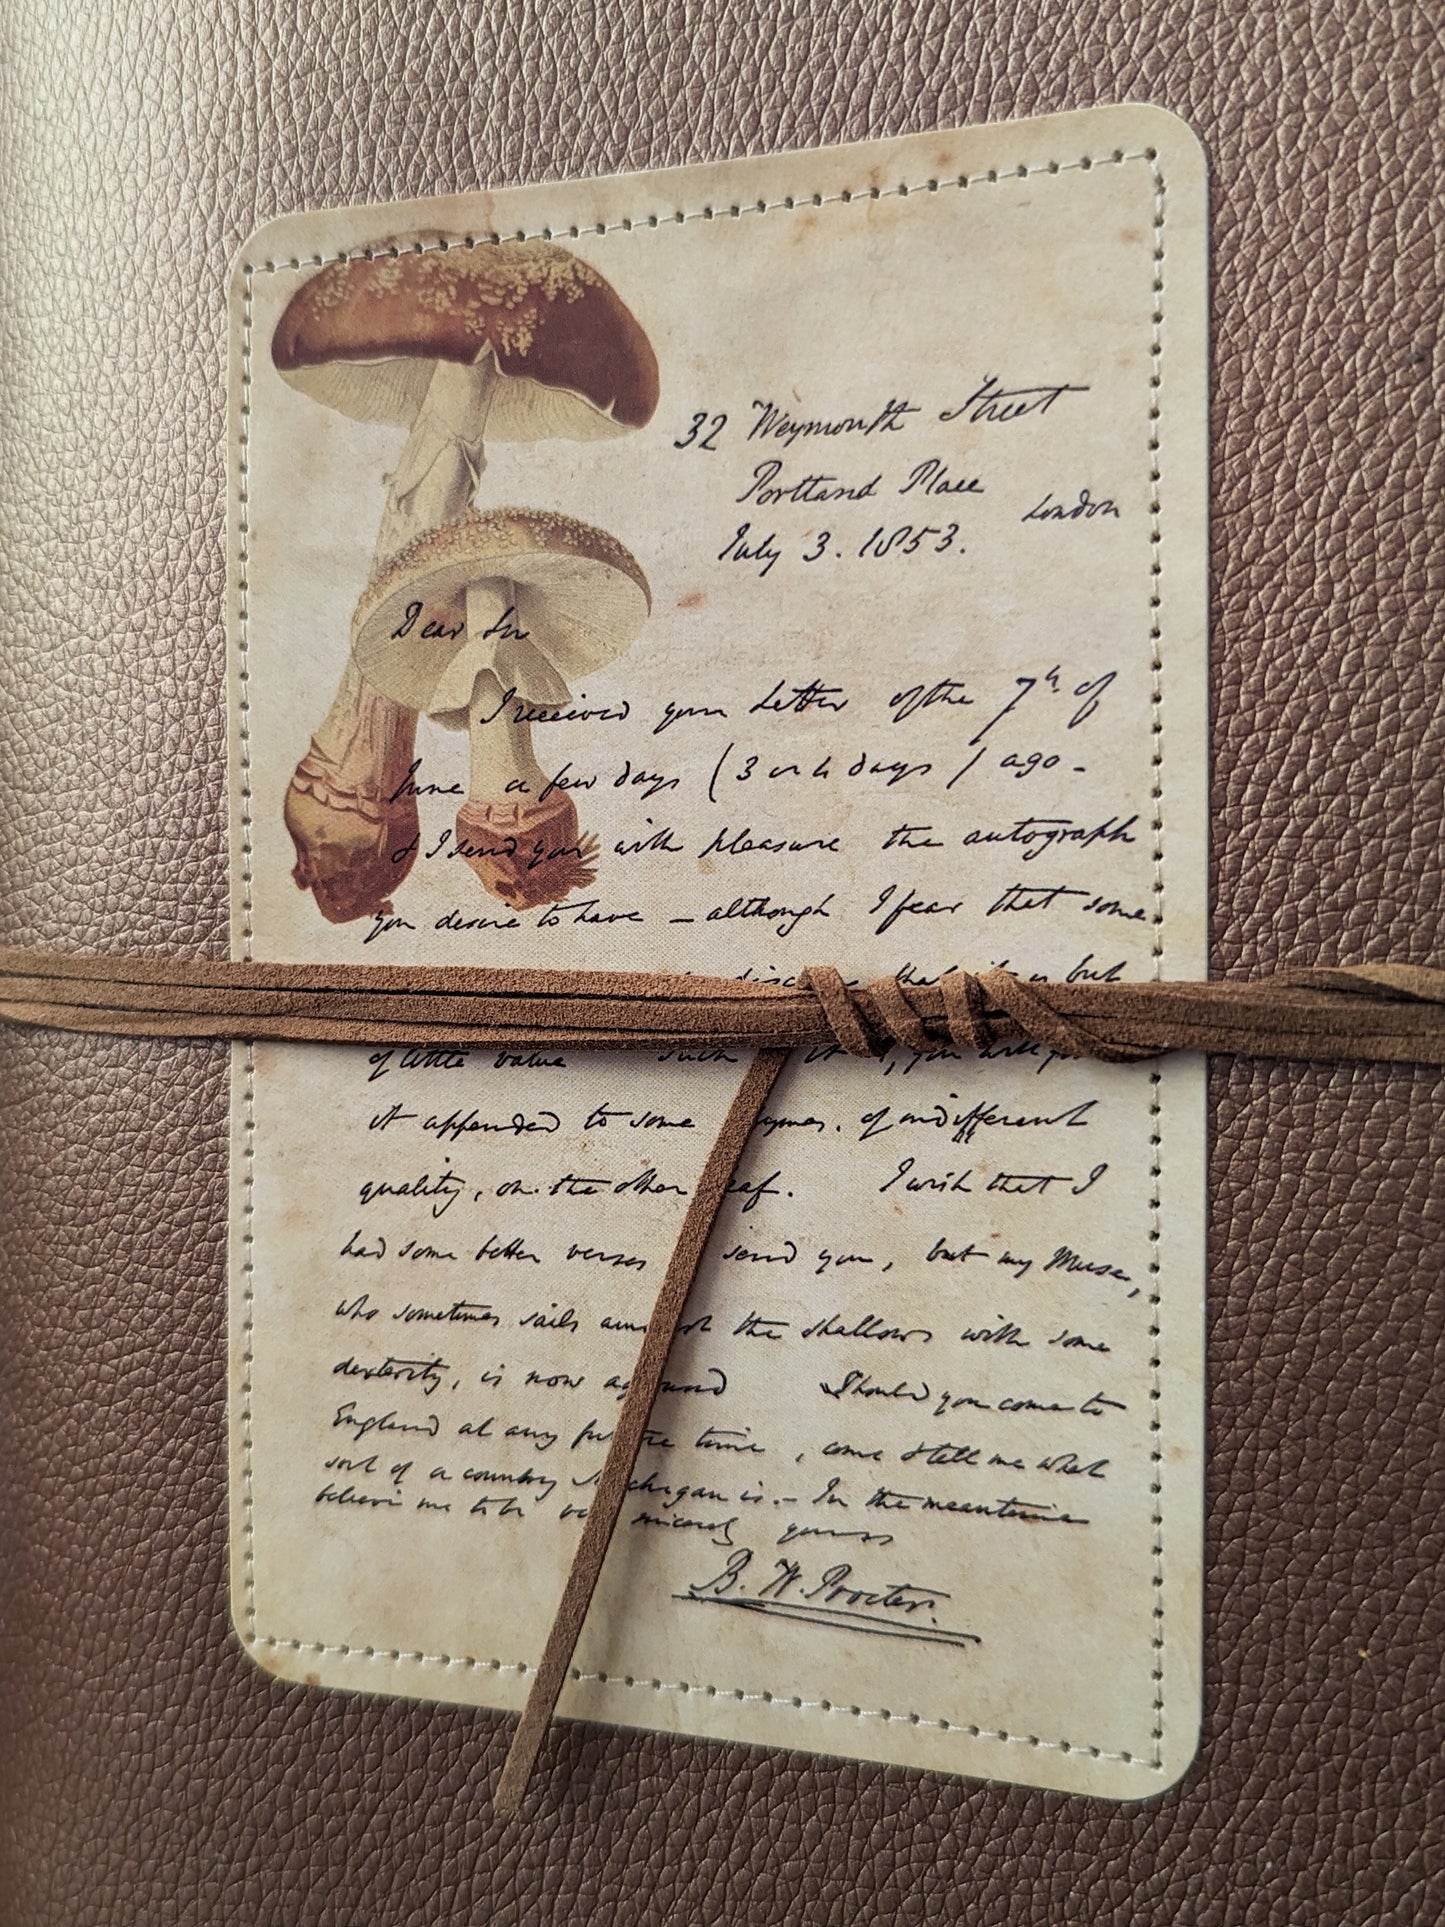 32 Weymouth Street
Portland Place
London
July 3. 1853.
Dear Sir
I received your Letter of the 7th of
June a few days (3 or 4 days) ago -
& I send you with pleasure the autograph
you desire to have - although I fear that some
that it is but
of little value such it you will
it appended to some of indifferent
quality, on the other . I wish that I
had some better verses send you, but my Muse,
who sometimes sails the shallows with some
dexterity, is now Should you come to
England at any time, come & tell me what
sort of a country is. - In the meantime
believe me to be yours
B. W. Procter.